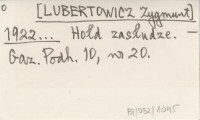 [LUBERTOWICZ Zygmunt]
1922... Hołd zasłudze. —
Gaz. Podh. 10, nr 20.